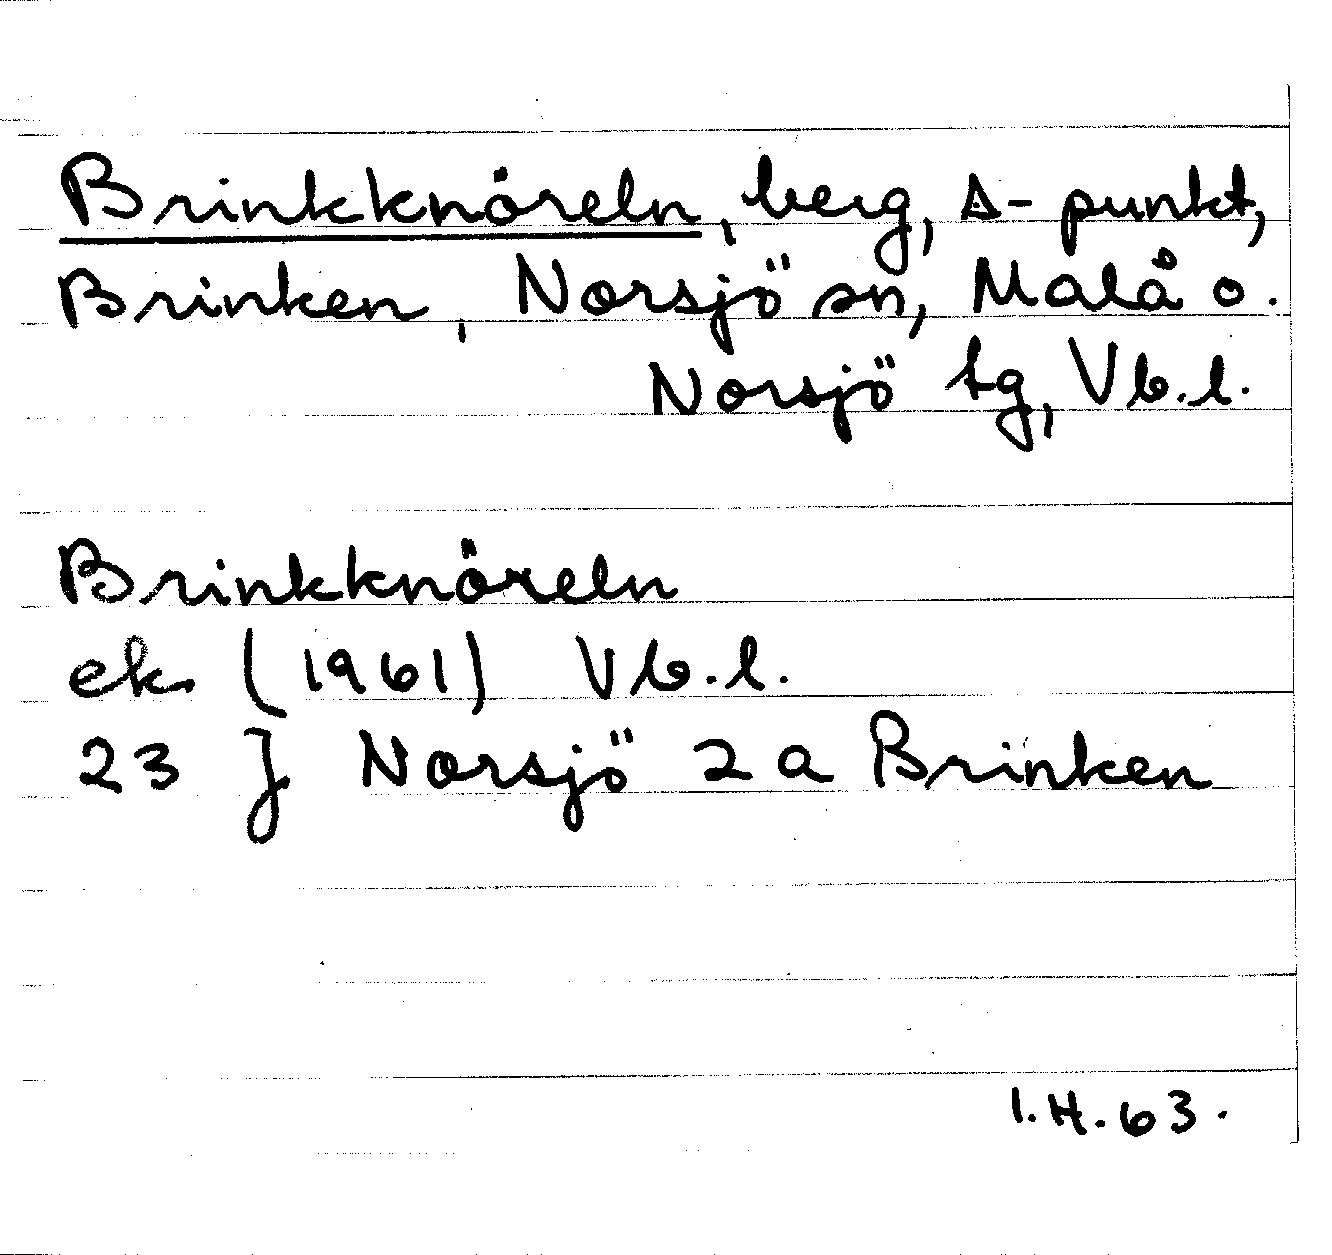 Brinkknöreln, berg, Δ-punkt,
Brinken, Norsjö sn, Malå o.
Norsjö tg, Vb.l.
Brinkknöreln
ek. (1961) Vb.l.
23 J Norsjö 2 a Brinken
I.H.63.